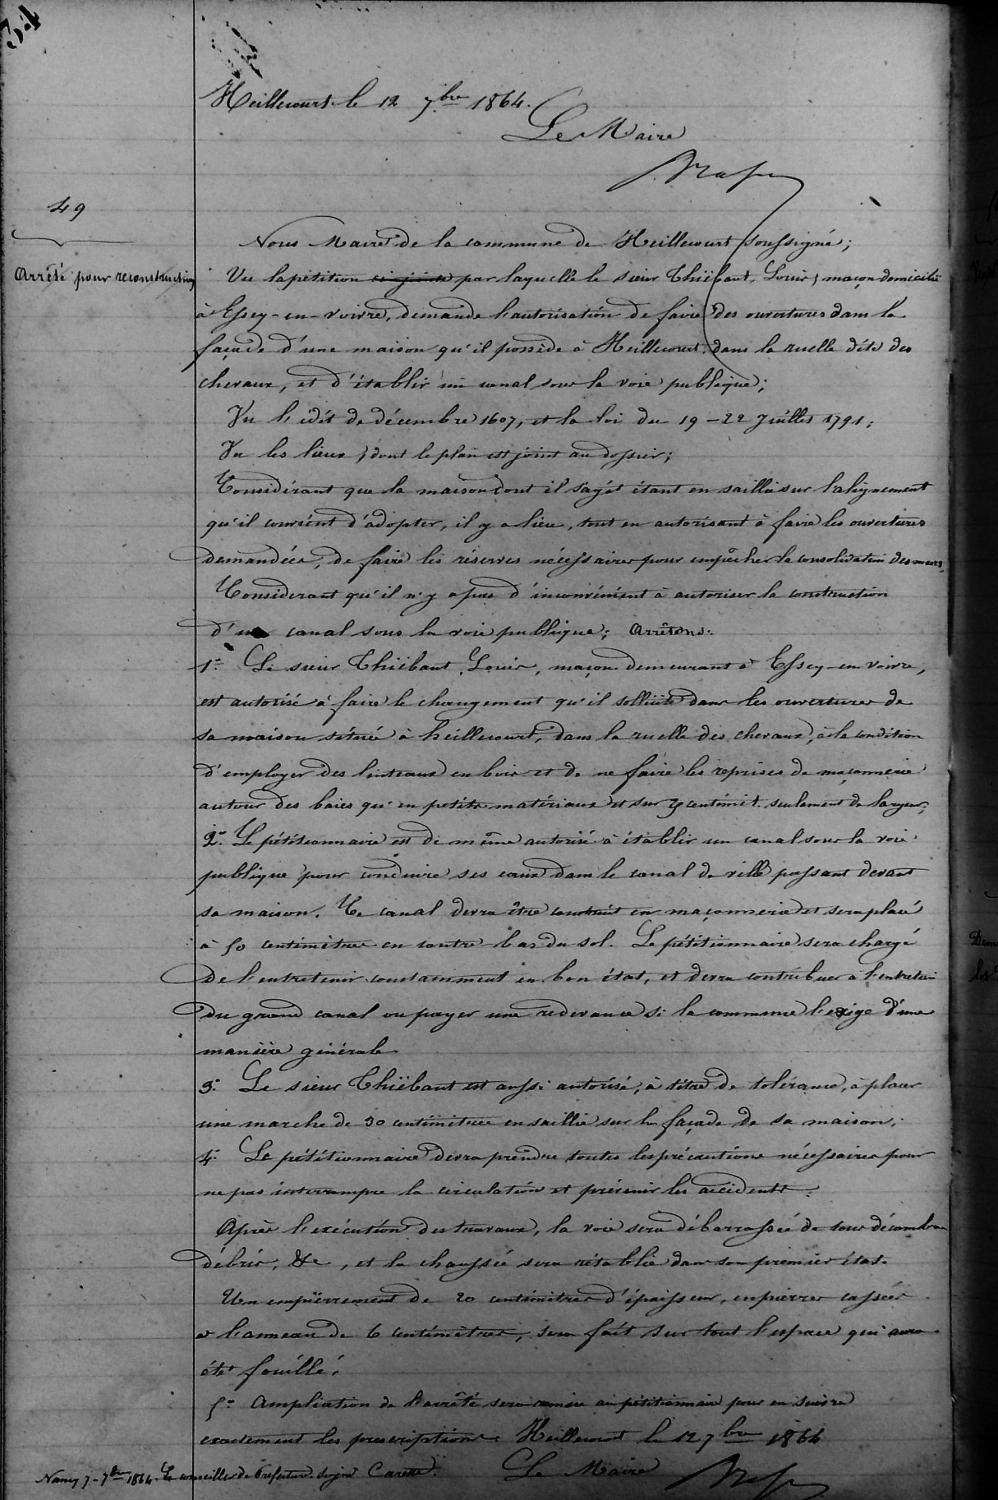 34
Heillecourt le 12 7bre 1864.
Le Maire
49
Arrêté pour reconstruction
Nous Maire de la commune de Heillecourt soussigné;
Vu la pétition ci-jointe par laquelle le sieur Thiébaut, Louis, maçon domicilié
à Essey-en-voivre, demande l'autorisation de faire des ouvertures dans la
façade d'une maison qu'il possède à Heillecourt, dans la ruelle dite des
chevaux, et d'établir un canal sous la voie publique;
Vu l'édit de décembre 1607, et la loi du 19-22 Juillet 1791;
Vu les lieux, dont le plan est joint au dossier;
Considérant que la maison dont il s'agit étant en saillie sur l'alignement
qu'il convient d'adopter, il y a lieu, tout en autorisant à faire les ouvertures
demandées, de faire les réserves nécessaires pour empêcher la consolidation des murs,
Considérant qu'il n'y a pas d'inconvénient à autoriser la construction
d'un canal sous la voie publique; Arrêtons:
1° Le sieur Thiébaut, Louis, maçon demeurant à Essey-en-voivre,
est autorisé à faire le changement qu'il sollicite dans les ouvertures de
sa maison située à heillecourt, dans la ruelle des chevaux, à la condition
d'employer des linteaux en bois et de ne faire les reprises de maçonnerie
autour des baies qu'en petits matériaux et sur centimèt. seulement de largeur;
2° Le pétitionnaire est de même autorisé à établir un canal sous la voie
publique pour conduire ses eaux dans le canal de ville passant devant
sa maison. Ce canal devra être construit en maçonnerie et sera placé
à 50 centimètres en contre bas du sol. Le pétitionnaire sera chargé
de l'entretenir constamment en bon état, et devra contribuer à l'entretien
du grand canal ou payer une redevance si la commune l'exige d'une
manière générale
3° Le sieur Thiébaut est aussi autorisé, à titre de tolérance, à placer
une marche de 30 centimètres en saillie sur la façade de sa maison.
4° Le pétitionnaire devra prendre toutes les précautions nécessaires pour
ne pas interrompre la circulation et prévenir les accidents.
Après l'exécution des travaux, la voie sera débarrassée de tous décombres
débris, &c, et la chaussée sera rétablie dans son premier état.
Un empierrement de 20 centimètres d'épaisseur, en pierres cassées
à l'anneau de 6 centimètres, sera fait sur tout l'espace qui aura
été fouillé.
5° Ampliation de l'arrêté sera remise au pétitionnaire pour en suivre
exactement les prescriptions. Heillecourt le 12 7bre 1864
Le Maire
Nancy 7-7bre 1864. Le conseiller de Préfecture. Signé